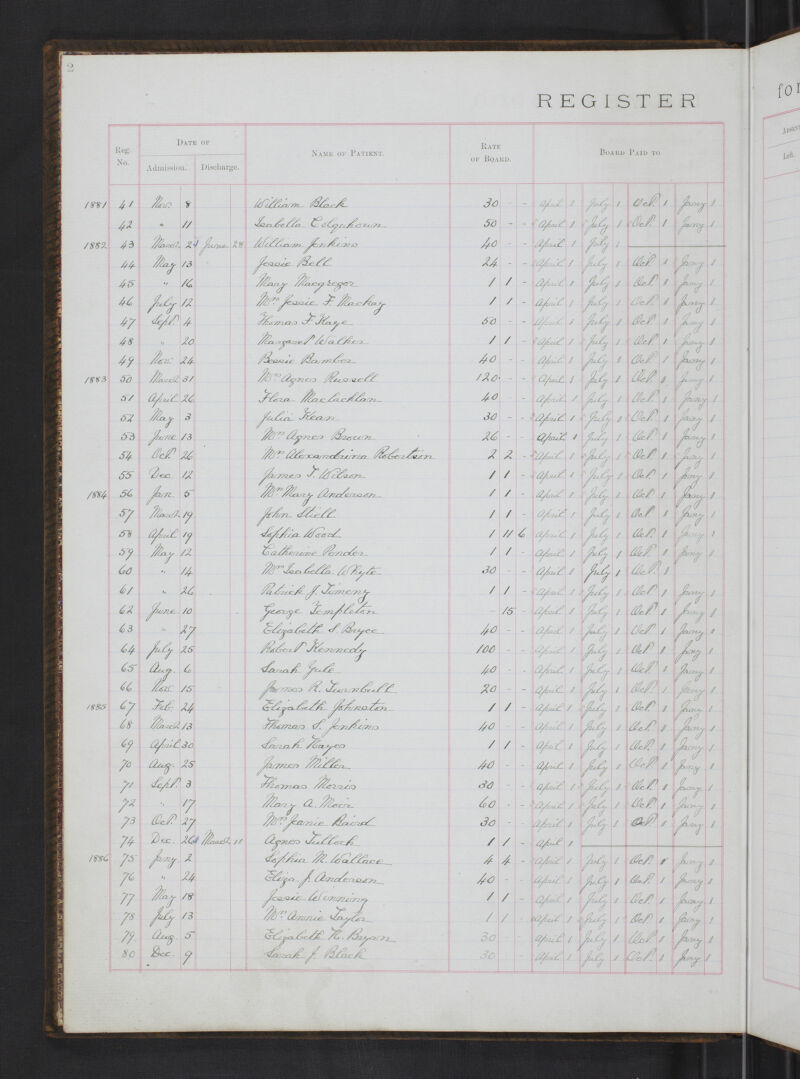 2
REGISTER
for
Reg. No. DATE OF Admission. Discharge. NAME OF PATIENT. RATE OF BOARD. BOARD PAID TO
Left.
1881 41 Nov. 8 William Black 30 - - April 1 July 1 Oct. 1 Jany 1
42 " 11 Isabella Colquhoun 50 - - April 1 July 1 Oct. 1 Jany 1
1882 43 March June 28 William Jenkins 40 - - April 1 July 1
44 May 13 Jessie Bell 24 - - April 1 July 1 Oct. 1 Jany 1
45 " 16 Mary Macgregor 1 1 - April 1 July 1 Oct. 1 Jany 1
46 July 12 Mrs. Jessie F. Mackay 1 1 - April 1 July 1 Oct. 1 Jany 1
47 Sept. 4 Thomas F. Kaye 50 - - April 1 July 1 Oct. 1 Jany 1
48 " 20 Margaret Walker 1 1 - April 1 July 1 Oct. 1 Jany 1
49 Nov. 24 Bessie Bamber 40 - - April 1 July 1 Oct. 1 Jany 1
1883 50 March 31 Mrs. Agnes Russell 120 - - April 1 July 1 Oct. 1 Jany 1
51 April 26 Flora Maclachlan 40 - - April 1 July 1 Oct. 1 Jany 1
52 May 3 Julia Kean 30 - - April 1 July 1 Oct. 1 Jany 1
53 June 13 Mrs. Agnes Brown 26 - - April 1 July 1 Oct. 1 Jany 1
54 Oct. 26 Mrs. Alexandrina Robertson 2 2 - April 1 July 1 Oct. 1 Jany 1
55 Dec. 12 James T. Wilson 1 1 - April 1 July 1 Oct. 1 Jany 1
1884 56 Jan. 5 Mrs. Mary Anderson 1 1 - April 1 July 1 Oct. 1 Jany 1
57 March 19 John Stiell 1 1 - April 1 July 1 Oct. 1 Jany 1
58 April 19 Sophia Wood 1 11 6 April 1 July 1 Oct. 1 Jany 1
59 May 12 Catherine Pender 1 1 - April 1 July 1 Oct. 1 Jany 1
60 " 14 Mrs. Isabella Whyte 30 - - April 1 July 1 Oct. 1
61 " 26 Patrick J. 1 1 - April 1 July 1 Oct. 1 Jany 1
62 June 10 George Templeton - 15 - April 1 July 1 Oct. 1 Jany 1
63 " 27 Elizabeth S. Bryce 40 - - April 1 July 1 Oct. 1 Jany 1
64 July 25 Robert Kennedy 100 - - April 1 July 1 Oct. 1 Jany 1
65 Aug. 6 Sarah Yule 40 - - April 1 July 1 Oct. 1 Jany 1
66 Nov. 15 James R. Turnbull 20 - - April 1 July 1 Oct. 1 Jany 1
1885 67 Feb. 24 Elizabeth Johnston 1 1 - April 1 July 1 Oct. 1 Jany 1
68 March 13 Thomas S. Jenkins 40 - - April 1 July 1 Oct. 1 Jany 1
69 April 30 Sarah Hayes 1 1 - April 1 July 1 Oct. 1 Jany 1
70 Aug. 25 James Miller 40 - - April 1 July 1 Oct. 1 Jany 1
71 Sept. 3 Thomas Morris 30 - - April 1 July 1 Oct. 1 Jany 1
72 " 17 Mary A. Moir 60 - - April 1 July 1 Oct. 1 Jany 1
73 Oct. 27 Mrs. Jeanie Baird 30 - - April 1 July 1 Oct. 1 Jany 1
74 Dec. 26 March 11 Agnes Tulloch 1 1 - April 1
1886 75 Jany. 2 Sophia M. Wallace 4 4 - April 1 July 1 Oct. 1 Jany 1
76 " 24 Eliza. J. Anderson 40 - - April 1 July 1 Oct. 1 Jany 1
77 May 18 Jessie Winning 1 1 - April 1 July 1 Oct. 1 Jany 1
78 July 13 Mrs. Annie Taylor 1 1 - April 1 July 1 Oct. 1 Jany 1
79 Aug. 5 Elizabeth K. Bryan 30 - - April 1 July 1 Oct. 1 Jany 1
80 Dec. 9 Sarah J. Black 30 - - April 1 July 1 Oct. 1 Jany 1